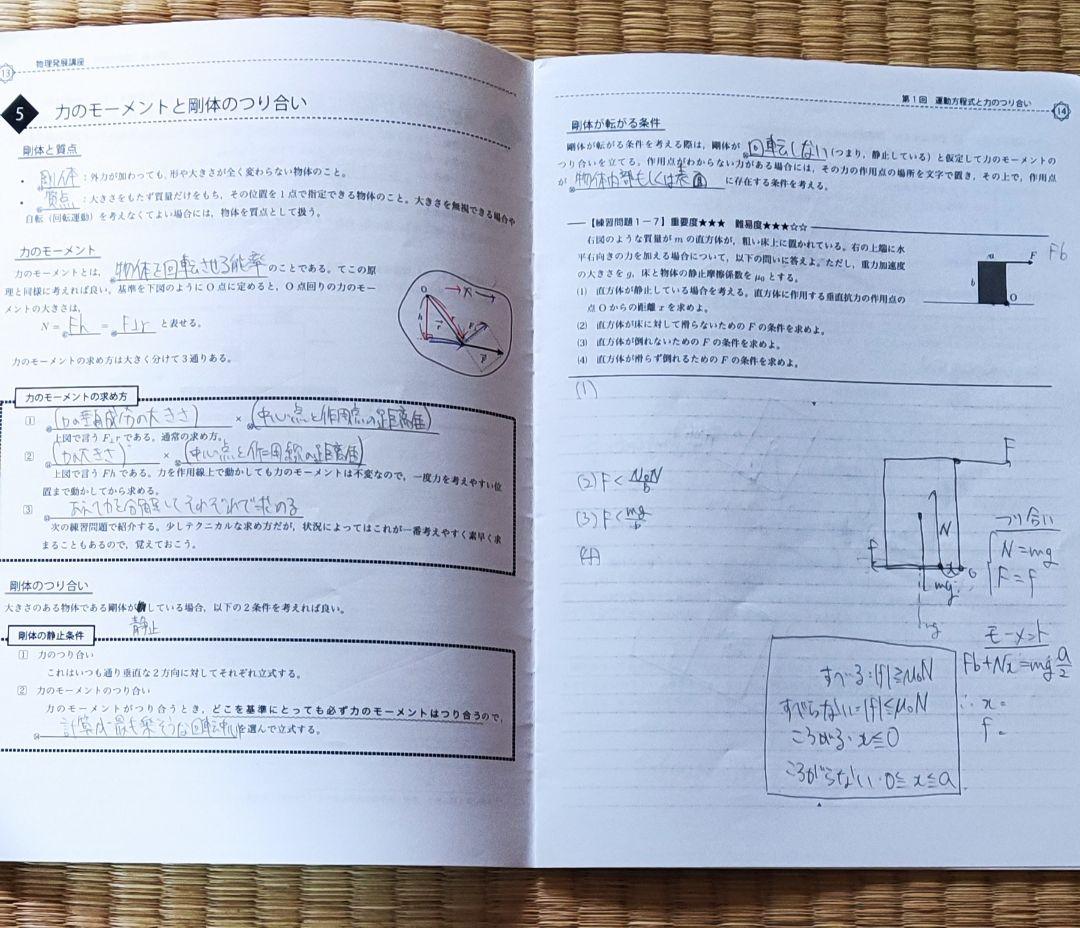 13 物理発展講座
5 力のモーメントと剛体のつり合い
剛体と質点
・ 剛体 : 外力が加わっても, 形や大きさが全く変わらない物体のこと。
・ 質点 : 大きさをもたず質量だけをもち, その位置を1点で指定できる物体のこと。大きさを無視できる場合や
自転(回転運動)を考えなくてよい場合には, 物体を質点として扱う。
力のモーメント
力のモーメントとは, 物体を回転させる能率 のことである。てこの原
理と同様に考えれば良い。基準を下図のようにO点に定めると, O点回りの力のモー
メントの大きさは,
N = Fh = F⊥r と表せる。
O
h
r
F
力のモーメントの求め方は大きく分けて3通りある。
力のモーメントの求め方
① (力の垂直成分の大きさ) × (中心点と作用点の距離)
上図で言う F⊥r である。通常の求め方。
② (力の大きさ) × (中心点と作用線の距離)
上図で言う Fh である。力を作用線上で動かしても力のモーメントは不変なので, 一度力を考えやすい位
置まで動かしてから求める。
③ 力を分解してそれぞれで求める
次の練習問題で紹介する。少しテクニカルな求め方だが, 状況によってはこれが一番考えやすく素早く求
まることもあるので, 覚えておこう。
剛体のつり合い
大きさのある物体である剛体が している場合, 以下の2条件を考えれば良い。
静止
剛体の静止条件
① 力のつり合い
これはいつも通り垂直な2方向に対してそれぞれ立式する。
② 力のモーメントのつり合い
力のモーメントがつり合うとき, どこを基準にとっても必ず力のモーメントはつり合うので,
計算が最も楽そうな回転軸 を選んで立式する。
第1回 運動方程式と力のつり合い 14
剛体が転がる条件
剛体が転がる条件を考える際は, 剛体が 回転しない (つまり, 静止している) と仮定して力のモーメントの
つり合いを立てる。作用点がわからない力がある場合には, その力の作用点の場所を文字で置き, その上で, 作用点
が 物体内部もしくは表面 に存在する条件を考える。
【練習問題1-7】重要度★★★ 難易度★★★☆☆
右図のような質量が m の直方体が, 粗い床上に置かれている。右の上端に水
平右向きの力を加える場合について, 以下の問いに答えよ。ただし, 重力加速度
の大きさを g, 床と物体の静止摩擦係数を μ₀ とする。
(1) 直方体が静止している場合を考える。直方体に作用する垂直抗力の作用点の
点 O からの距離 x を求めよ。
(2) 直方体が床に対して滑らないための F の条件を求めよ。
(3) 直方体が倒れないための F の条件を求めよ。
(4) 直方体が滑らず倒れるための F の条件を求めよ。
a
F
b
O
Fb
(1)
(2) F < μ₀N/b
(3) F < mg/b
(4)
F
N
f
x
O
mg
つり合い
N = mg
F = f
モーメント
Fb + Nx = mg a/2
∴ x =
f =
すべる : |f| ≧ μ₀N
すべらない = |f| ≦ μ₀N
ころがる・x ≦ 0
ころがらない・0 ≦ x ≦ a